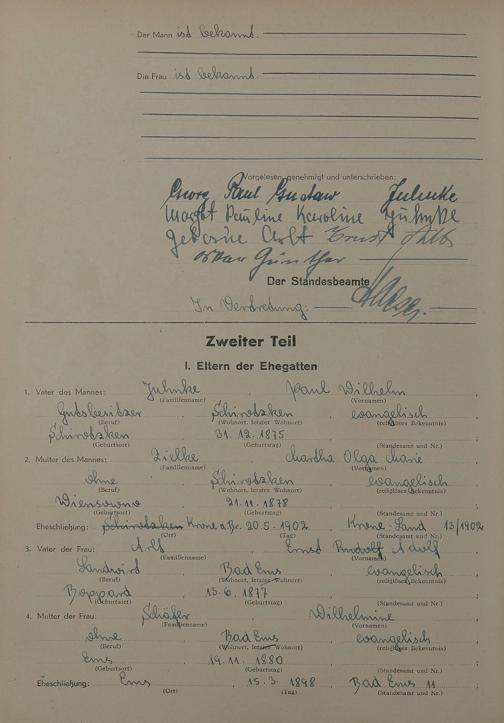 Der Mann ist bekannt.
Die Frau ist bekannt.
Vorgelesen, genehmigt und unterschrieben:
Georg Paul Gustav Juhnke
Margot Pauline Karoline Juhnke
geborne Arlt Ernst Arlt
Oskar Günther
Der Standesbeamte
In Vertretung:
Zweiter Teil
I. Eltern der Ehegatten
1. Vater des Mannes: Juhnke Paul Wilhelm
(Familienname) (Vornamen)
Gutsbesitzer Schirotzken evangelisch
(Beruf) (Wohnort, letzter Wohnort) (religiöses Bekenntnis)
Schirotzken 31. 12. 1875
(Geburtsort) (Geburtstag) (Standesamt und Nr.)
2. Mutter des Mannes: Zielke Martha Olga Marie
(Familienname) (Vornamen)
ohne Schirotzken evangelisch
(Beruf) (Wohnort, letzter Wohnort) (religiöses Bekenntnis)
21. 11. 1878
(Geburtsort) (Geburtstag) (Standesamt und Nr.)
Eheschließung: Schirotzken Krone a. Br. 20. 5. 1902 Krone-Land 13/1902
(Ort) (Tag) (Standesamt und Nr.)
3. Vater der Frau: Arlt Ernst Rudolf Adolf
(Familienname) (Vornamen)
Landwirt Bad Ems evangelisch
(Beruf) (Wohnort, letzter Wohnort) (religiöses Bekenntnis)
Boppard 13. 6. 1877
(Geburtsort) (Geburtstag) (Standesamt und Nr.)
4. Mutter der Frau: Schäfer Wilhelmine
(Familienname) (Vornamen)
ohne Bad Ems evangelisch
(Beruf) (Wohnort, letzter Wohnort) (religiöses Bekenntnis)
Ems 19. 11. 1880
(Geburtsort) (Geburtstag) (Standesamt und Nr.)
Eheschließung: Ems 15. 3. 1898 Bad Ems 11
(Ort) (Tag) (Standesamt und Nr.)